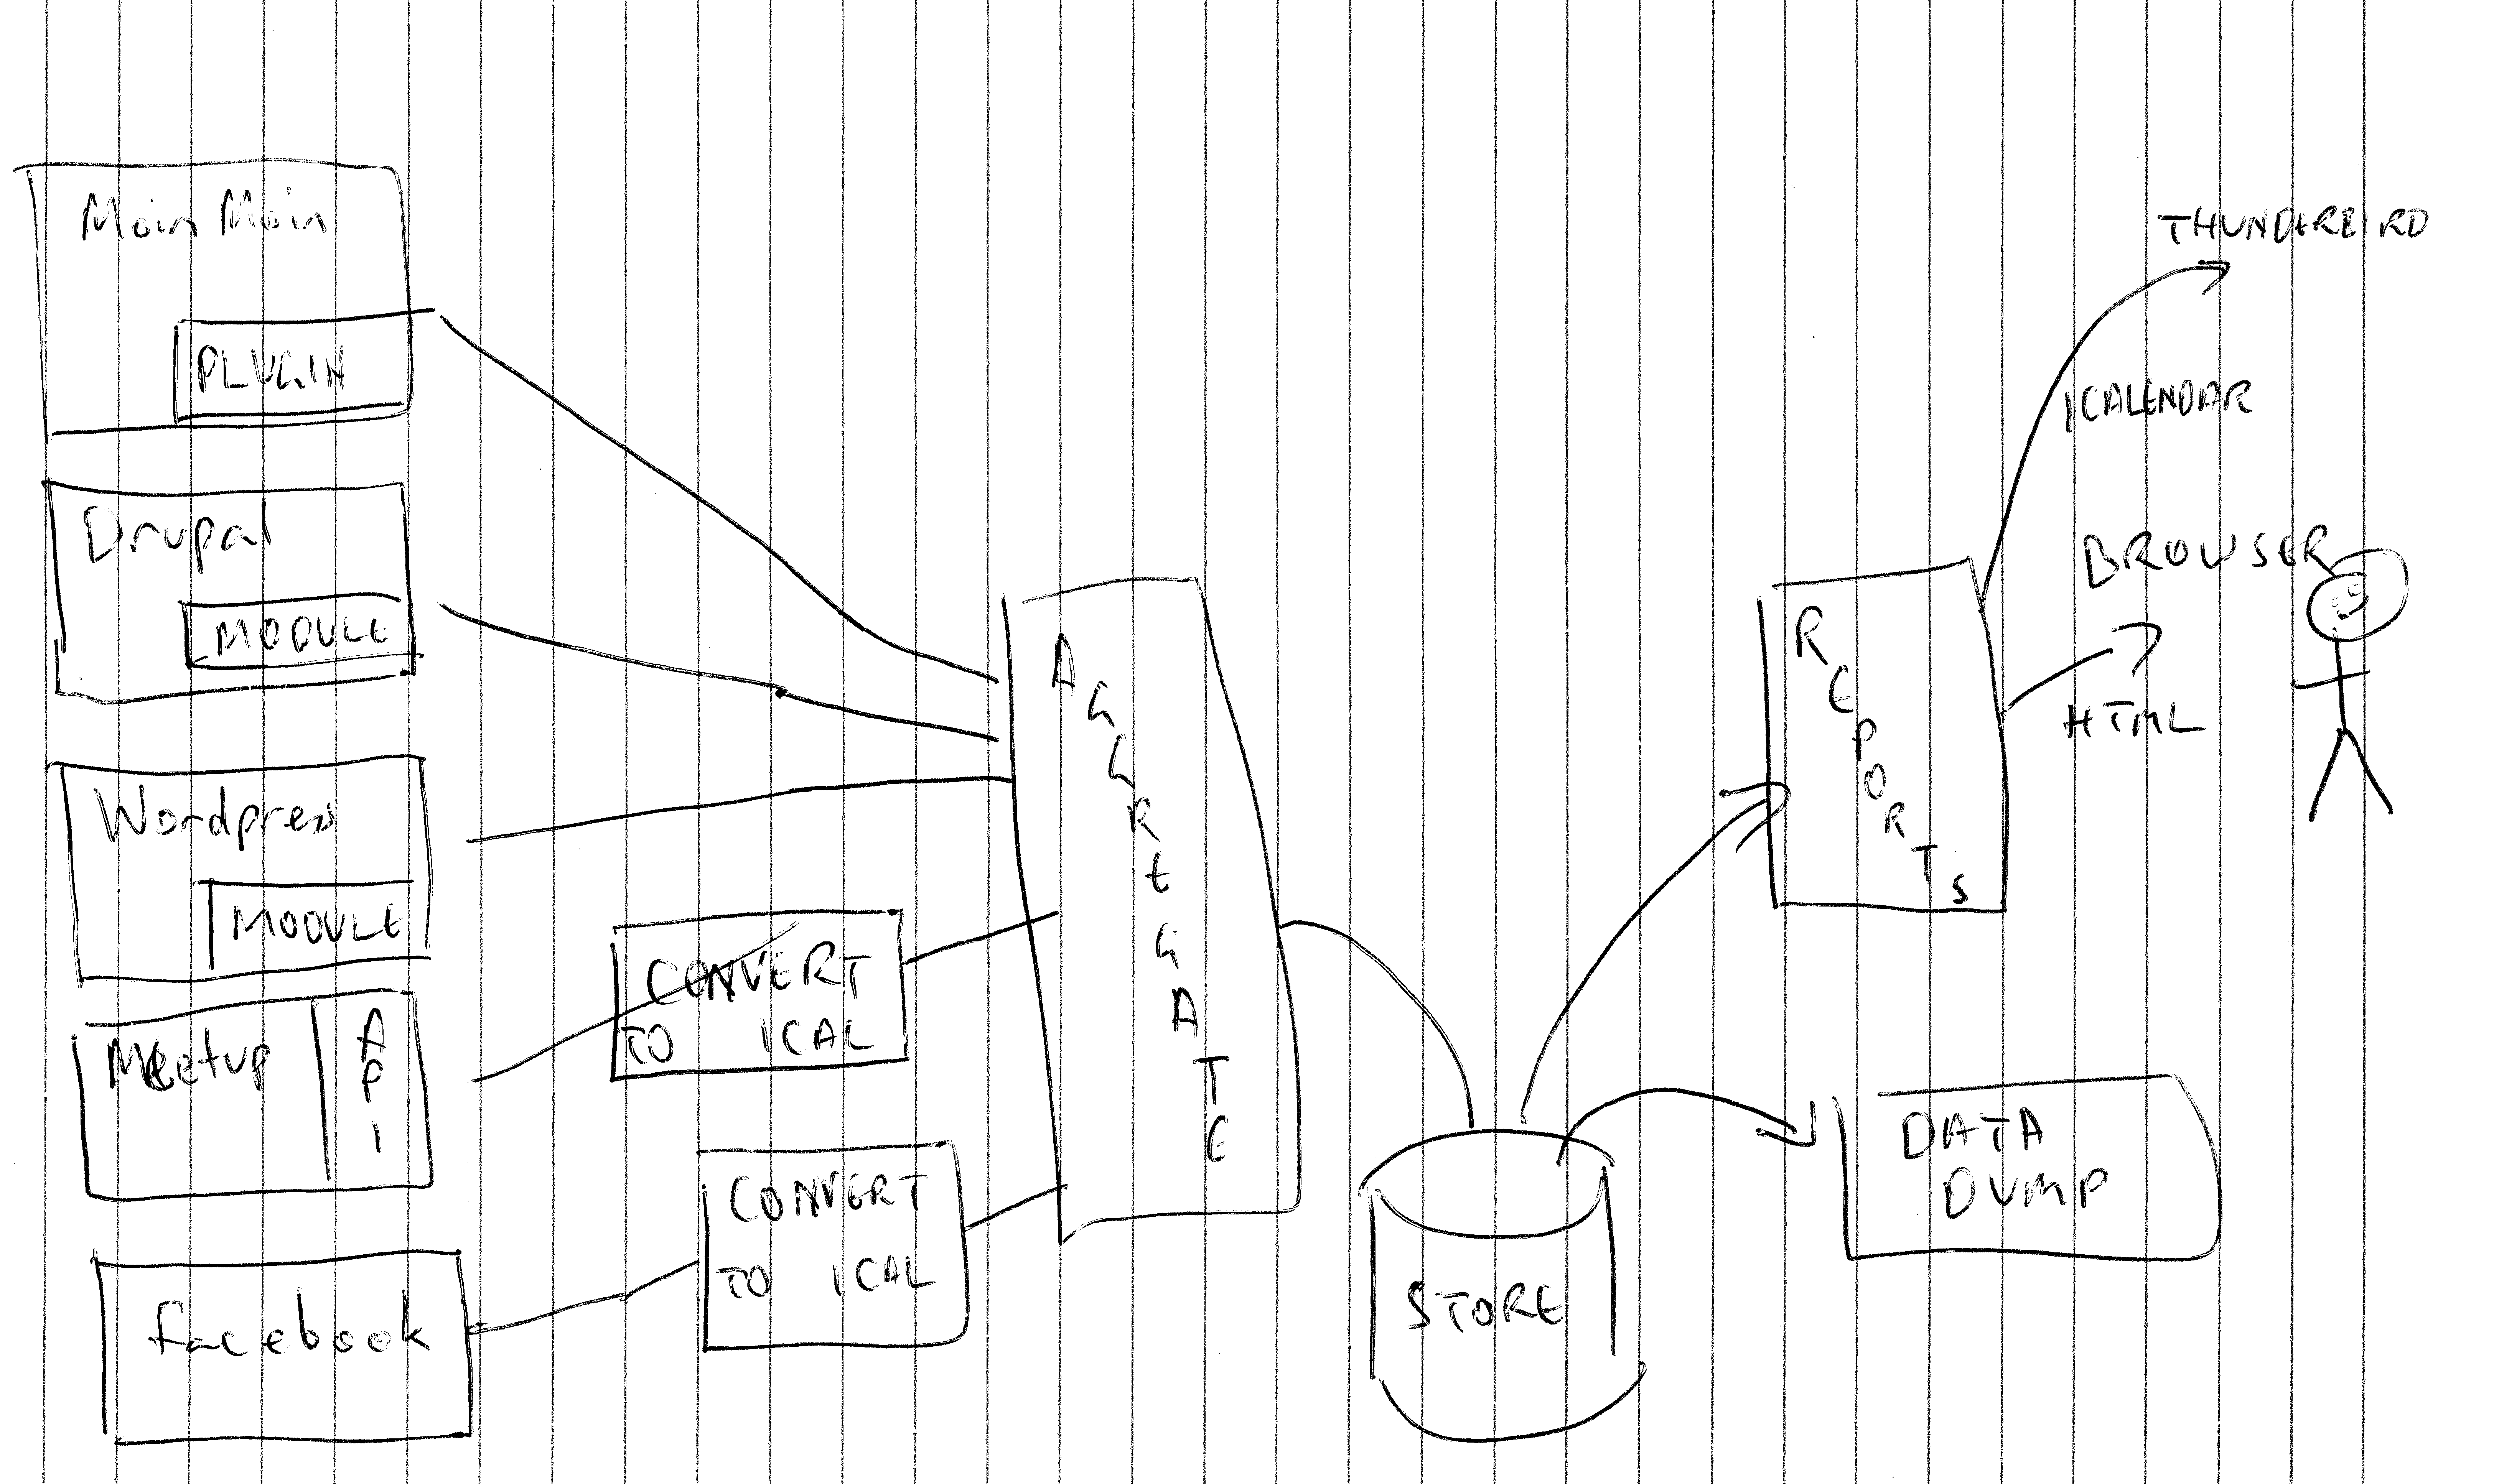 Moin Moin
PLUGIN
Drupal
MODULE
Wordpress
MODULE
Meetup
API
facebook
CONVERT
TO ICAL
CONVERT
TO ICAL
AGGREGATE
STORE
REPORTS
DATA
DUMP
THUNDERBIRD
ICALENDAR
BROWSER
HTML